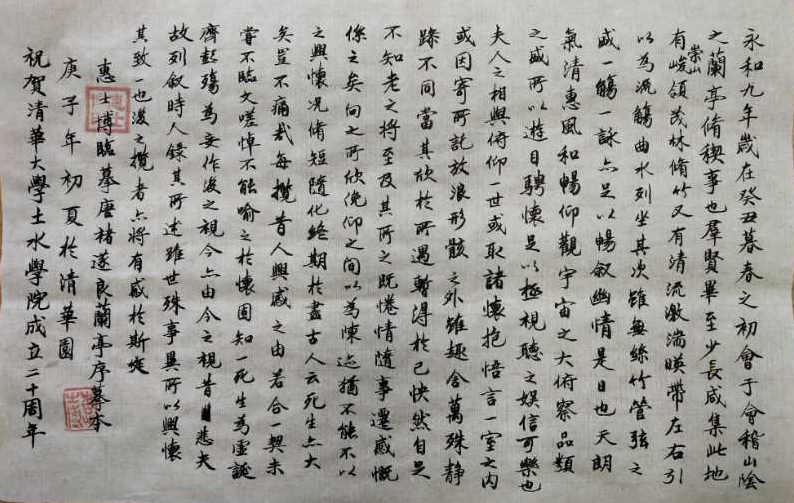 永和九年歲在癸丑暮春之初會于會稽山陰
之蘭亭脩稧事也羣賢畢至少長咸集此地
有崇山峻領茂林脩竹又有清流激湍暎帶左右引
以為流觴曲水列坐其次雖無絲竹管弦之
盛一觴一詠亦足以暢敘幽情是日也天朗
氣清惠風和暢仰觀宇宙之大俯察品類
之盛所以遊目騁懷足以極視聽之娛信可樂也
夫人之相與俯仰一世或取諸懷抱悟言一室之內
或因寄所託放浪形骸之外雖趣舍萬殊靜
躁不同當其欣於所遇暫得於己快然自足
不知老之將至及其所之既惓情隨事遷感慨
係之矣向之所欣俛仰之間以為陳迹猶不能不以
之興懷況脩短隨化終期於盡古人云死生亦大
矣豈不痛哉每攬昔人興感之由若合一契未
嘗不臨文嗟悼不能喻之於懷固知一死生為虛誕
齊彭殤為妄作後之視今亦由今之視昔悲夫
故列敘時人錄其所述雖世殊事異所以興懷
其致一也後之攬者亦將有感於斯文
惠士博臨摹唐褚遂良蘭亭序摹本
庚子年初夏於清華園
祝賀清華大學土水學院成立二十周年